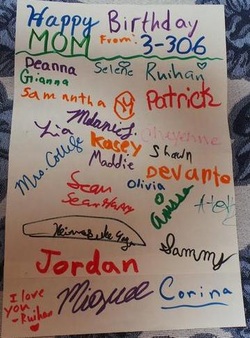 Happy Birthday
MOM From: 3-306
Deanna Selene Ruihan
Gianna
Samantha Patrick
Melanie J.
Lia Kasey Cheyenne
Mrs. College Maddie Shawn
Sean Olivia Devante
Sean Henry Anissa
Sammy
Jordan
I love
you Miguel Corina
-Ruihan